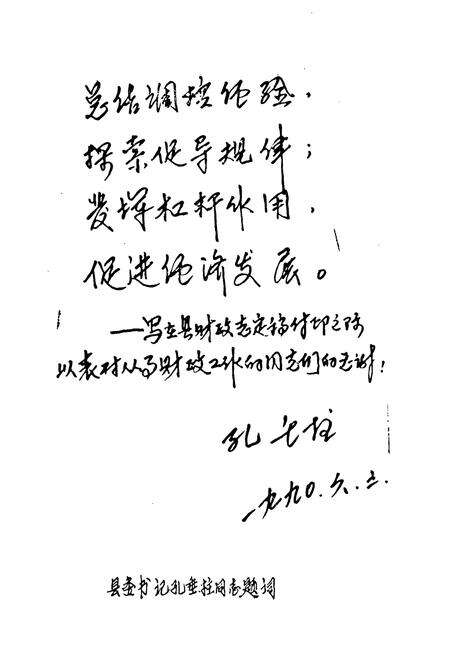 总结调控经验，
探索促导规律；
发挥杠杆作用，
促进经济发展。
——写在县财政志定稿付印之际
以表对从事财政工作的同志们的感谢！
孔垂柱
一九九〇.六.三.
县委书记孔垂柱同志题词